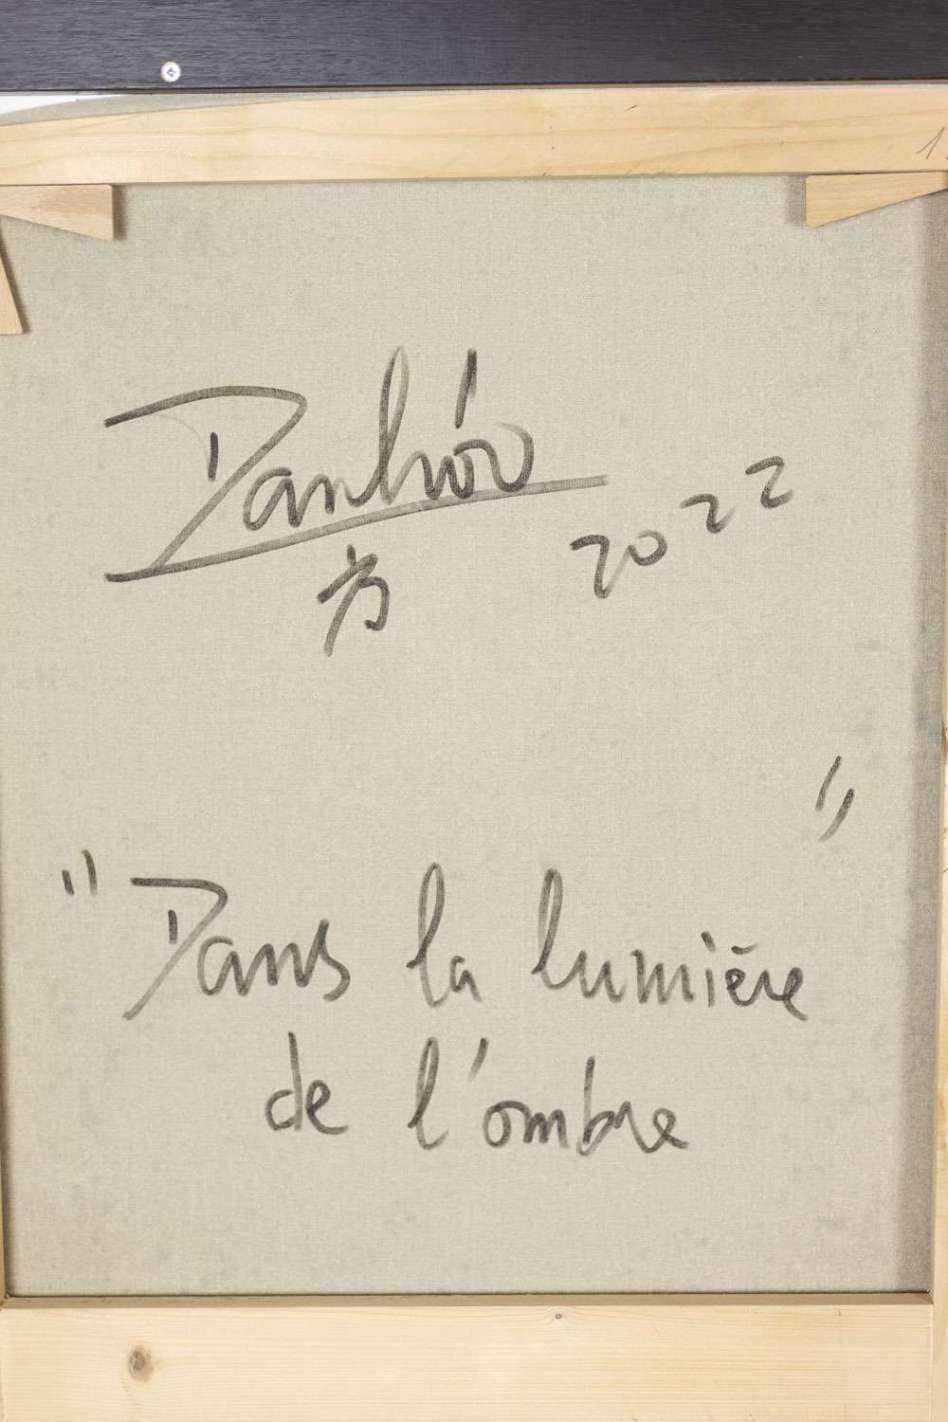 Danhôo
2022
"Dans la lumière
de l'ombre"